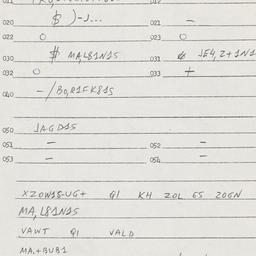 020 $ )-J... 021 –
022 O 023 O
030 $ MA,L81N1S 031 JE4,Z+1N1
032 O 033 +
040 –/B0,R1FK81S
050 JAGD1S
051 – 052 –
053 – 054 –
XZOW18-UG+ QI KH ZOL ES ZOGN
MA,L81N1S
VAWT QI VALD
MA,+BUB1